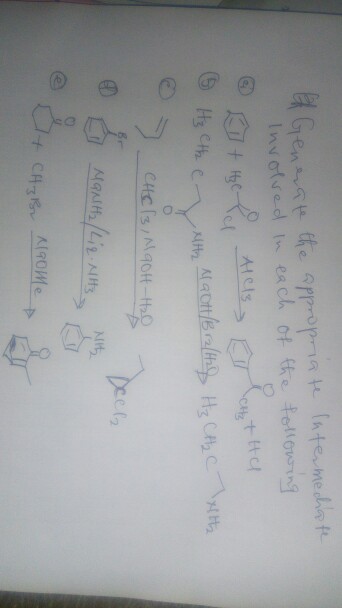 Generate the appropriate Intermediate
Involved in each of the following
(a) + H3C O Cl AlCl3 O CH3 + HCl
(b) H3CH2C O NH2 NaOH/Br2/H2O H3CH2C NH2
(c) CHCl3, NaOH-H2O CCl2
(d) Br NaNH2/Liz. NH3 NH2
(e) O + CH3Br NaOMe O